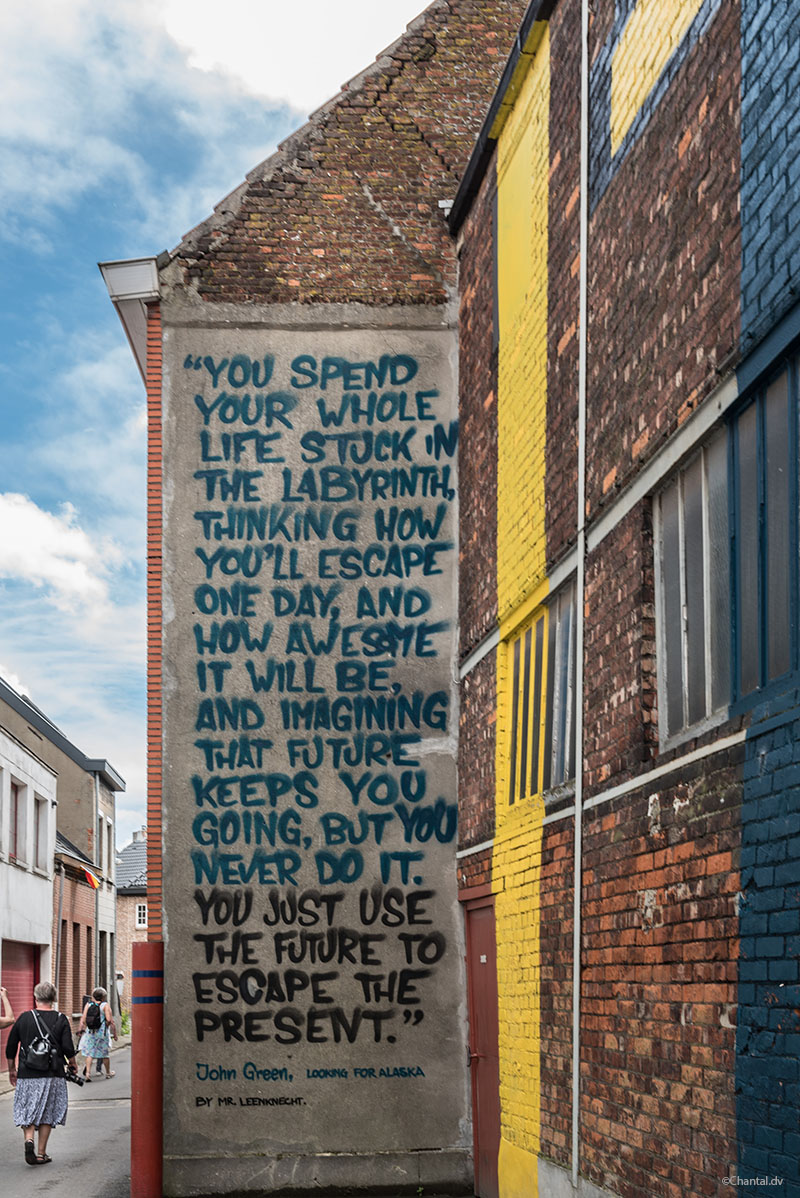 “YOU SPEND
YOUR WHOLE
LIFE STUCK IN
THE LABYRINTH,
THINKING HOW
YOU'LL ESCAPE
ONE DAY, AND
HOW AWESOME
IT WILL BE,
AND IMAGINING
THAT FUTURE
KEEPS YOU
GOING, BUT YOU
NEVER DO IT.
YOU JUST USE
THE FUTURE TO
ESCAPE THE
PRESENT.”
John Green, LOOKING FOR ALASKA
BY MR. LEENKNECHT.
©Chantal.dv